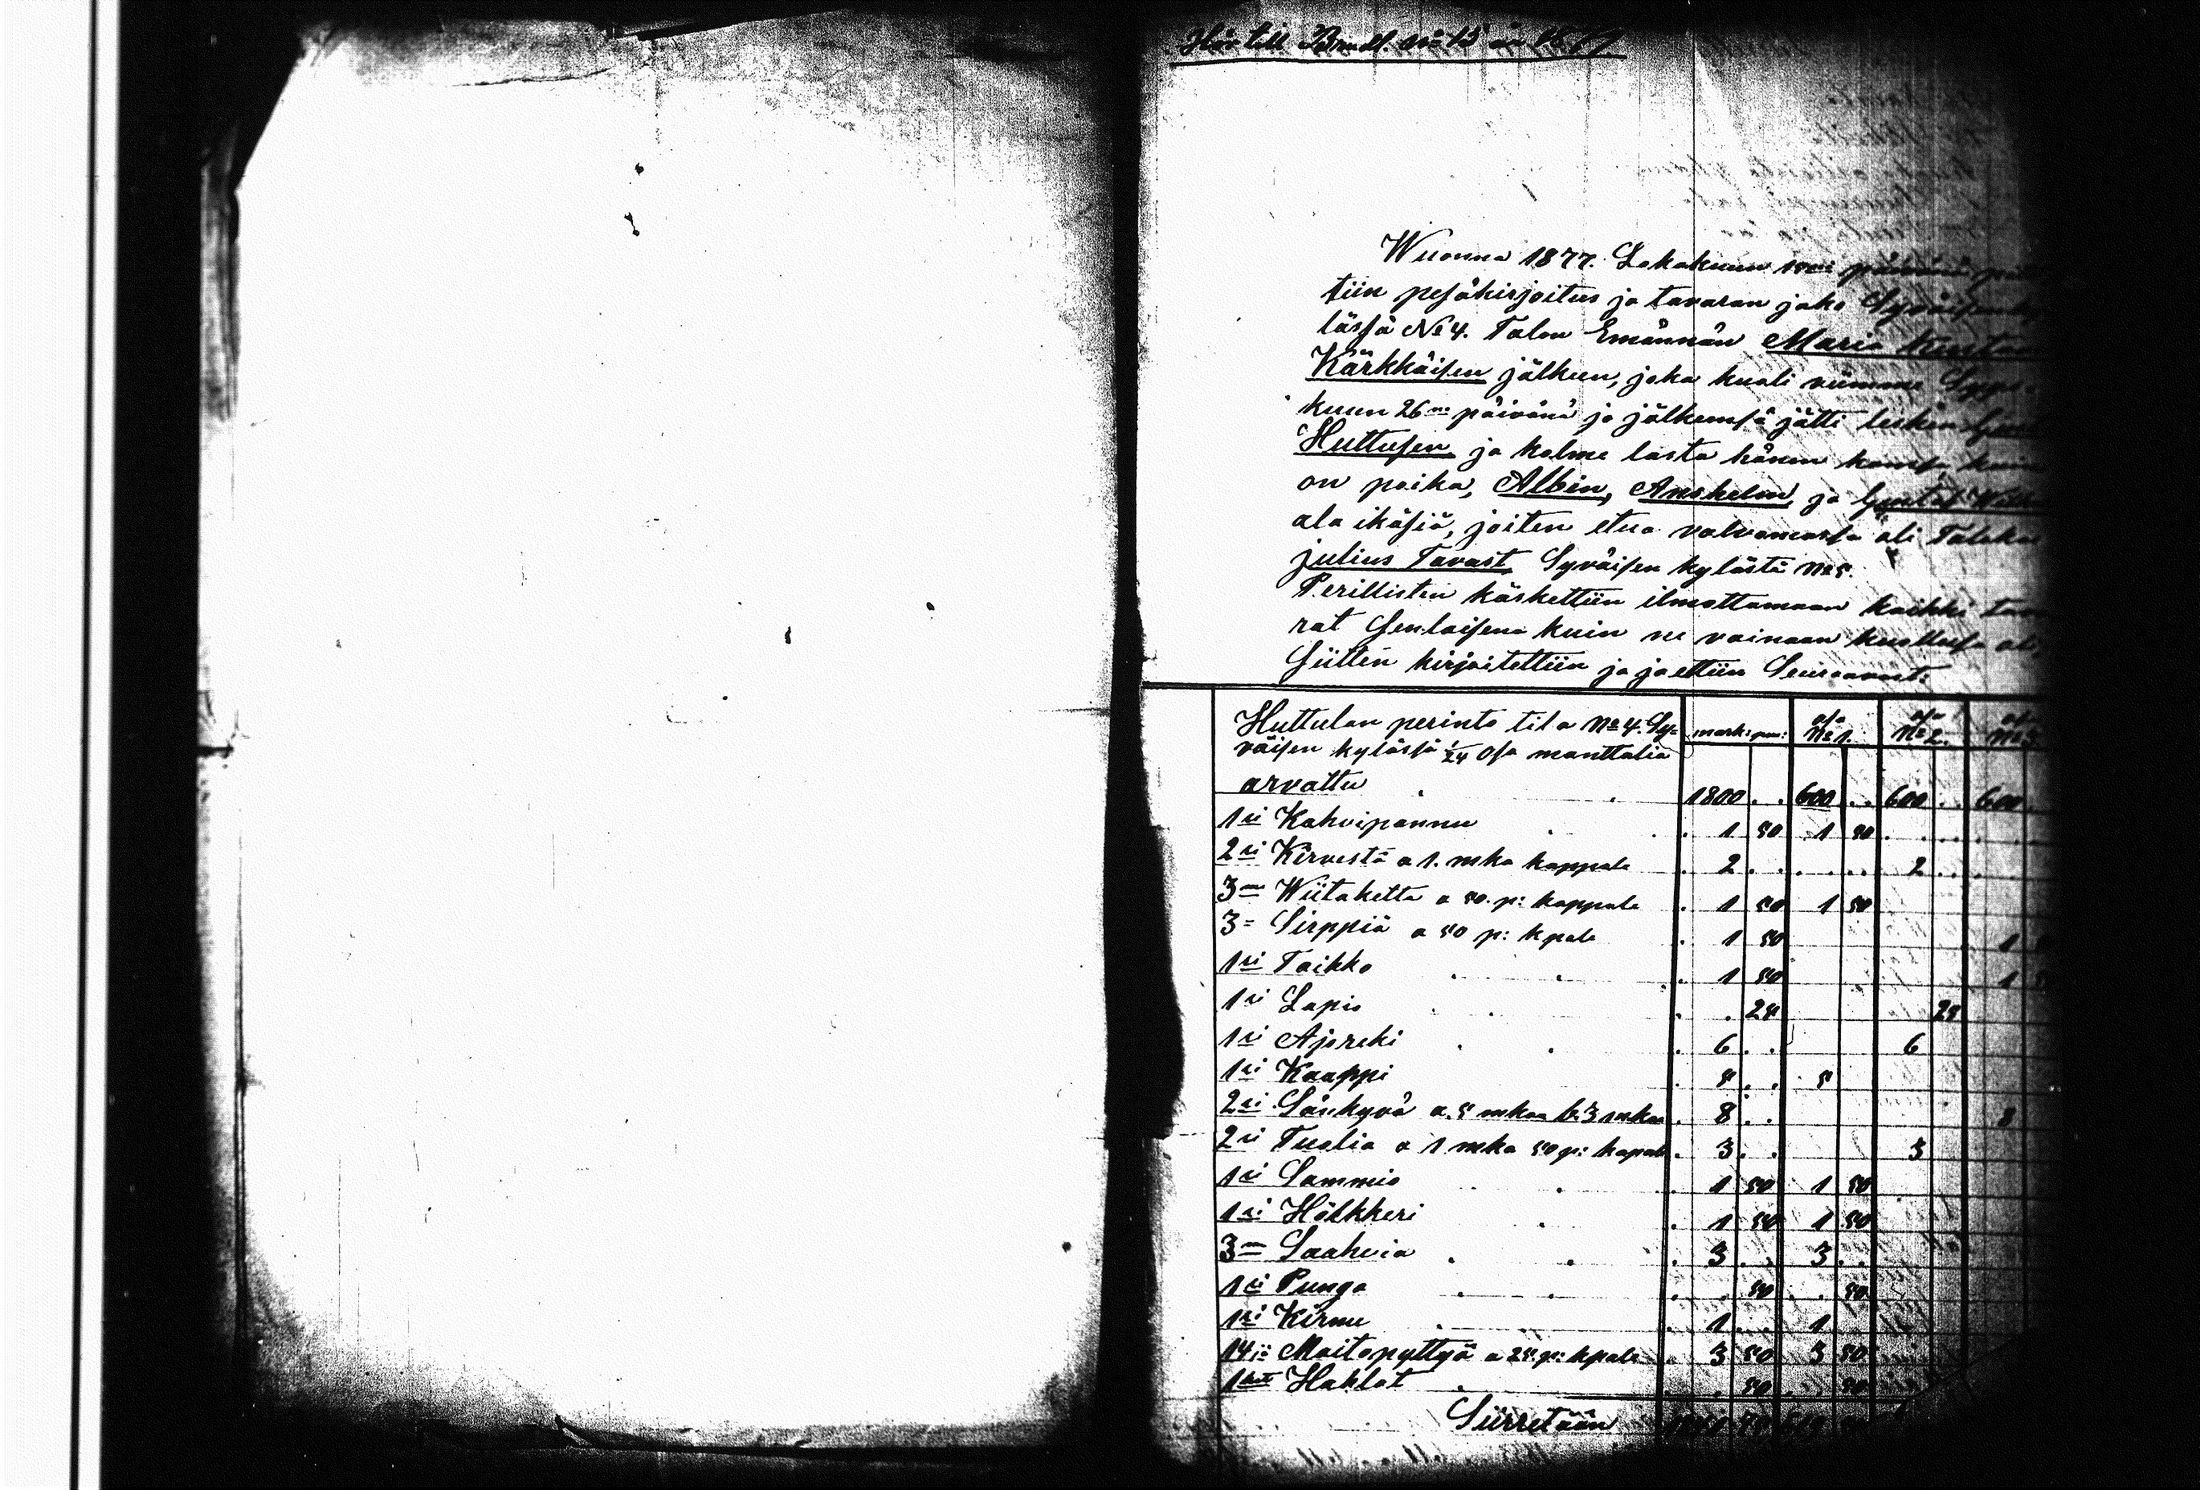 Hör till
Wuonna 1877. Lokakuun päivänä
tiin pesäkirjoitus ja tavaran jako Syväisen
lässä No 4. Talon Emännän Maria
Kärkkäisen jälkeen, joka kuoli viimme
kuun 26na päivänä ja jälkeensä jätti lesken
Huttusen ja kolme lasta hänen kanssa, kuin
on poika, Albin, Anshelm ja
ala ikäsiä, joiten etua valvomassa oli
julius Tavast Syväisen kylästä No 5.
Perillisten käskettiin ilmottamaan kaikki
rat senlaisena kuin ne vainaan kuollessa
Siitten kirjoitettiin ja jaettiin Seuraavast:
Huttulan perinto tila No 4. Sy- mark: pen: osa No 1. osa No 2.
väisen kylässä 1/24 Osa manttalia
arvattu 1800 . . 600 . . 600 . . 600
1si Kahvipannu 1 50 1 50
2si Kirvestä a 1. mka kappale 2 . . 2
3me Wiitaketta a 50. p: kappale 1 50 1 50
3= Sirppiä a 50 p: kpale 1 50 1
1si Taikko 1 50 1
1si Lapio . 25 25
1si Ajoreki 6 . . 6
1si Kaappi 5 . . 5
2si Sänkyvä a. 5 mkaa b. 3 mkaa 8 . . 8
2si Tuolia a 1. mka 50 p: kapale 3 . . 3
1si Sammio 1 50 1 50
1si Hölkkeri 1 50 1 50
3me Saahvia 3 . . 3 . .
1si Punga . 50 . 50
1si Kirnu 1 . . 1
14ii Maitopyttyä a 25. p: kpale 3 50 3 50
1ket Haklat . 50 . 50
Siirretään